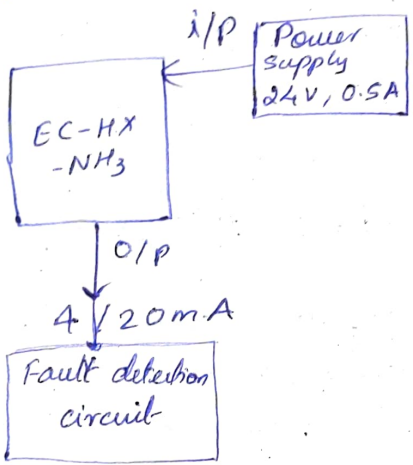 i/p
Power
supply
24V, 0.5A
EC-HX
-NH3
O/p
4/20m.A
Fault detection
circuit